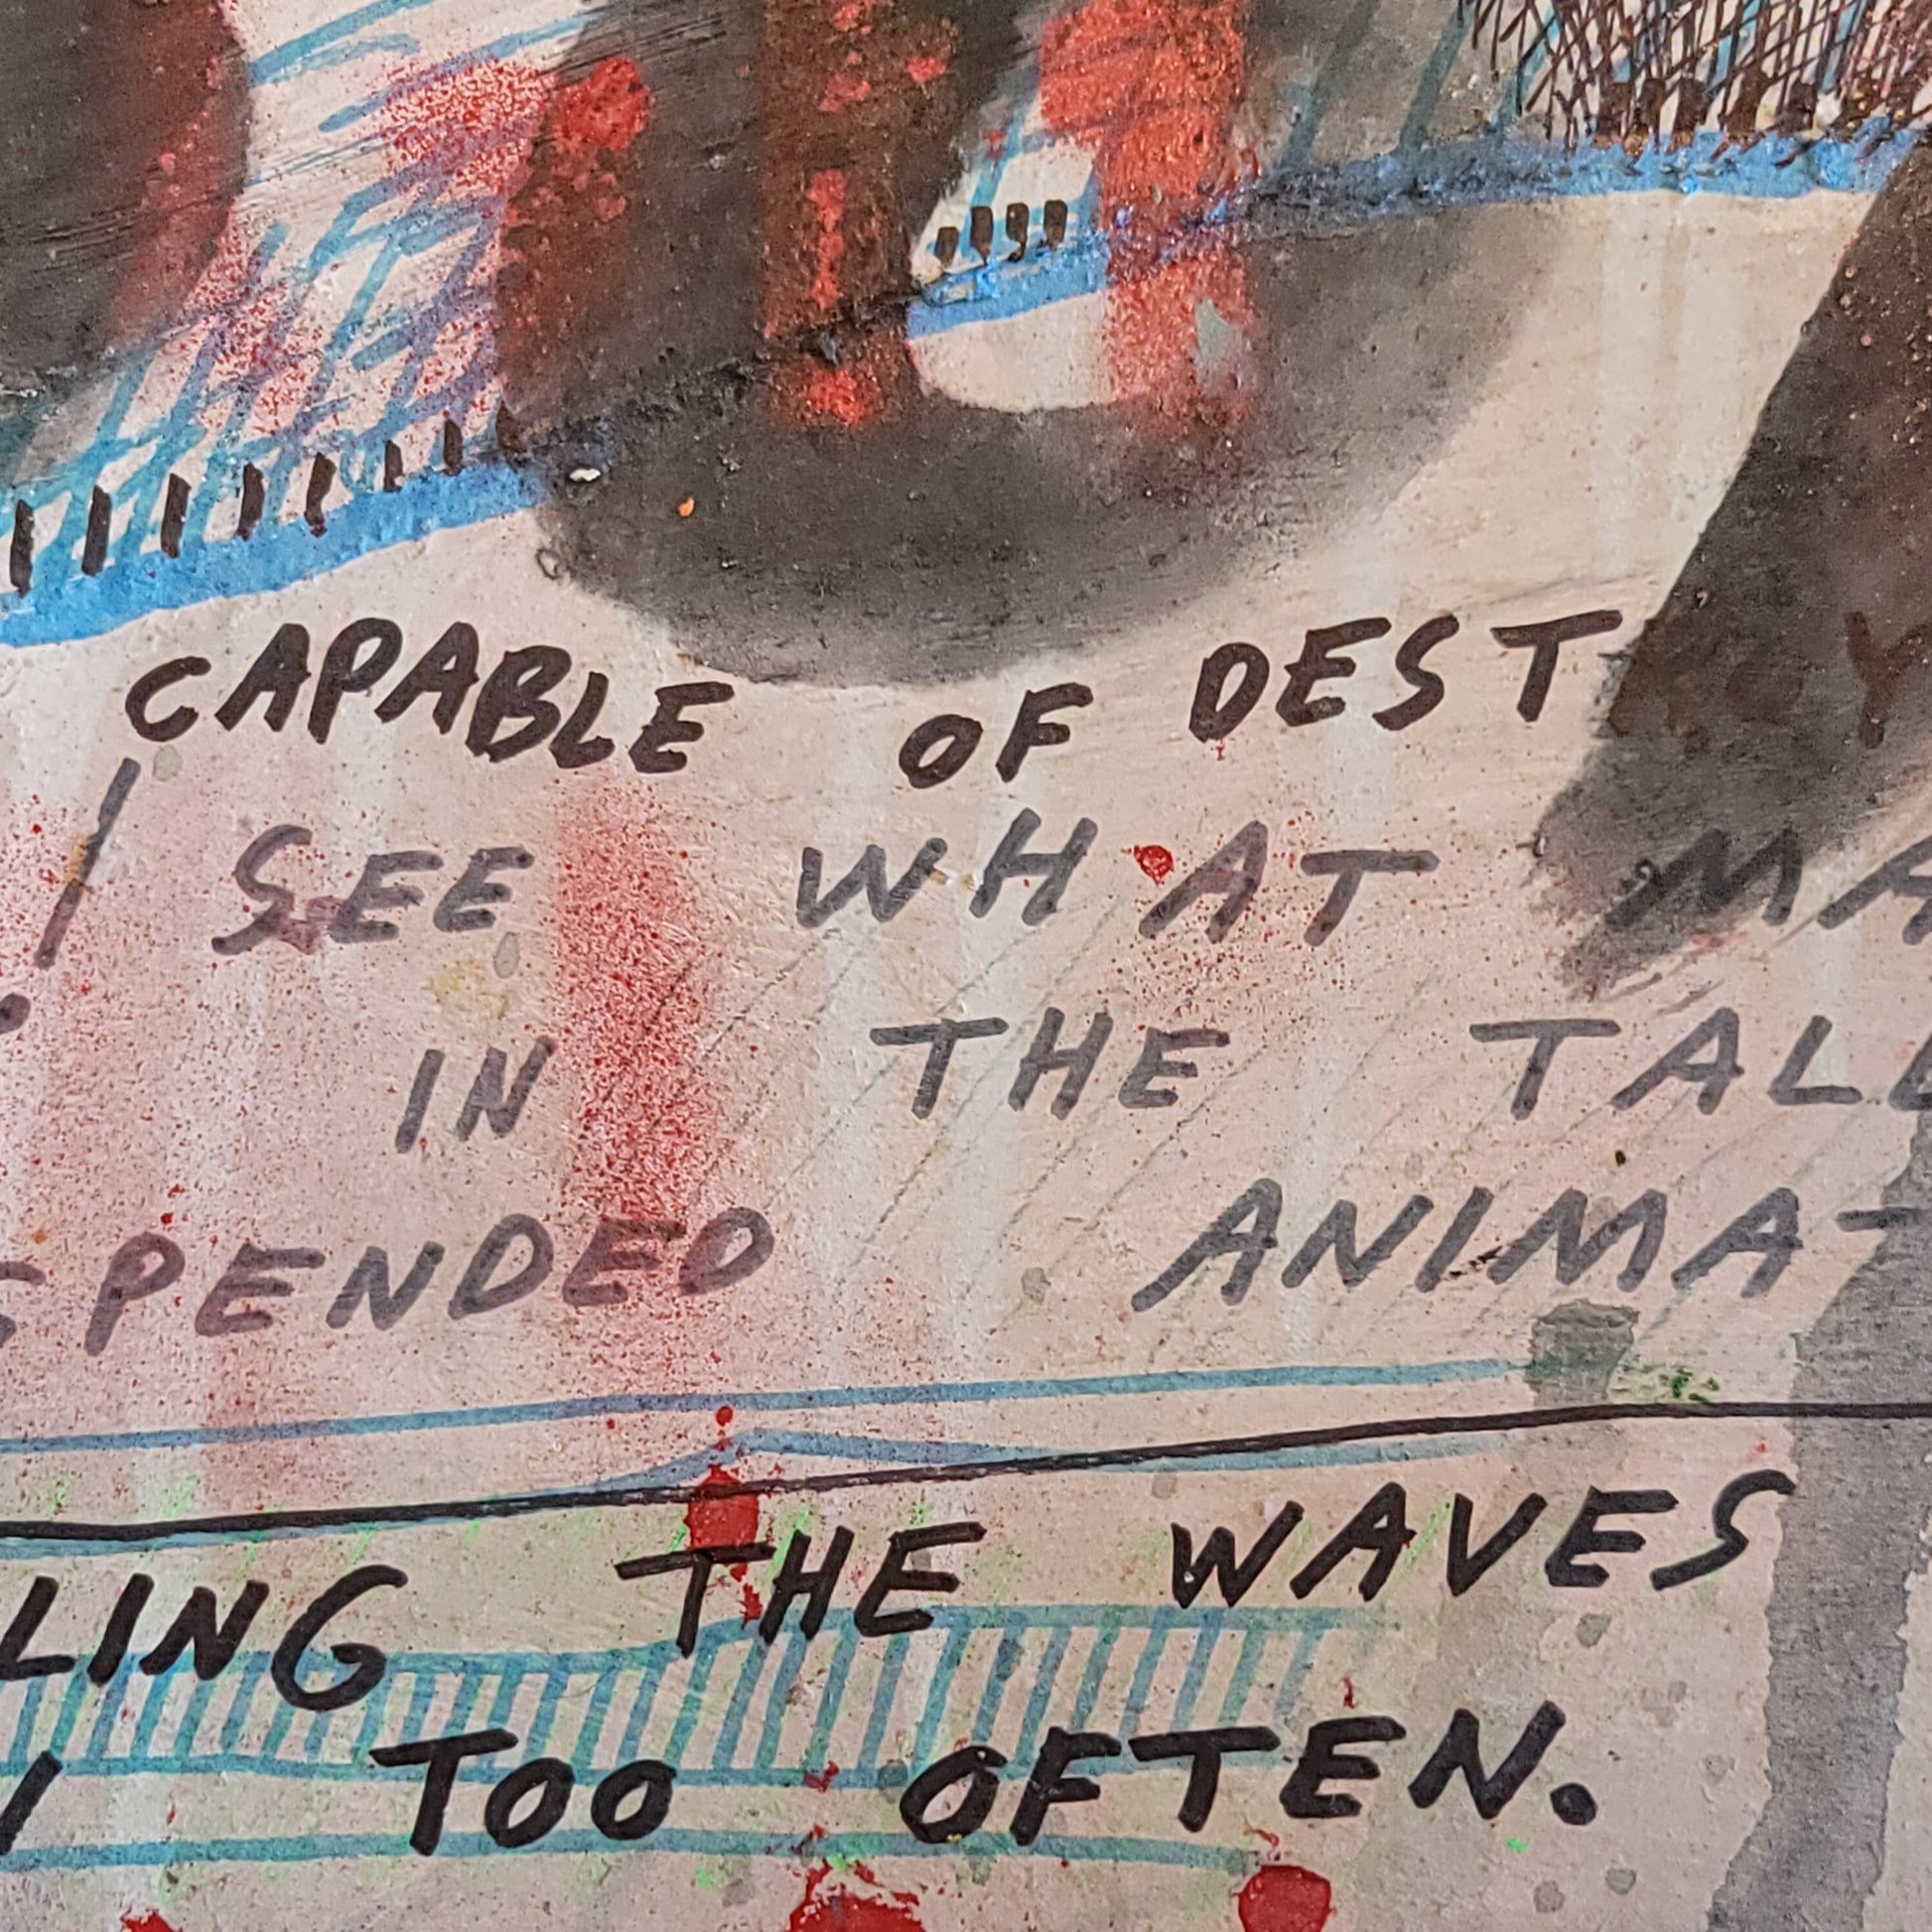 CAPABLE OF DEST
I SEE WHAT MA
IN THE TALL
SPENDED ANIMAT
LING THE WAVES
TOO OFTEN.